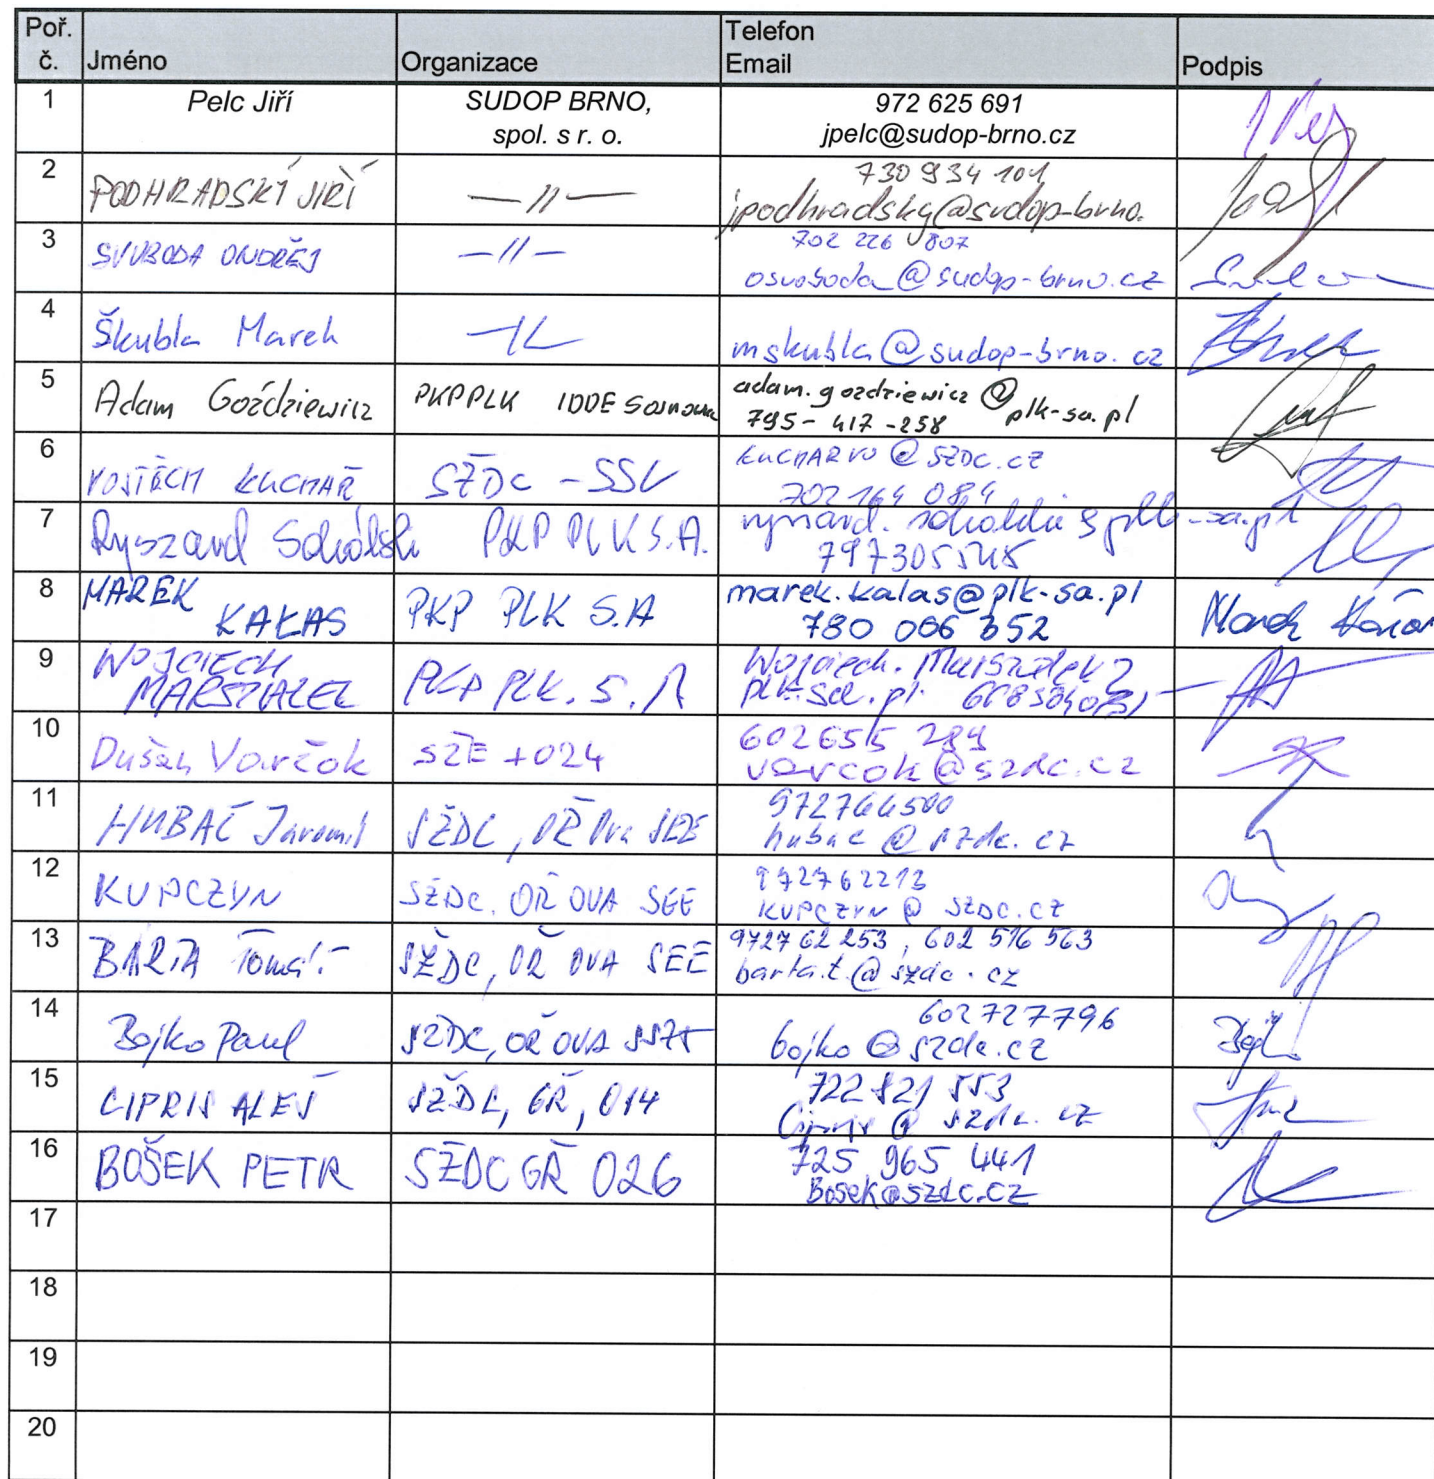 Poř.
č. Jméno Organizace Telefon
Email Podpis
1 Pelc Jiří SUDOP BRNO,
spol. s r. o. 972 625 691
jpelc@sudop-brno.cz
2 PODHRADSKÝ JIŘÍ —//— 730 934 101
jpodhradsky@sudop-brno.
3 SVOBODA ONDŘEJ —//— 702 226 807
osvoboda@sudop-brno.cz
4 Škubla Marek —//—
mskubla@sudop-brno.cz
5 Adam Goździewicz PKP PLK adam.gozdziewicz@
plk-sa.pl
795-417-258
6 VOJTĚCH KUCHAŘ SŽDC - SSV KUCHARVO@SZDC.CZ
702 164 084
7 Ryszard PKP PLK S.A.
797305545
8 MAREK
KAŁAS PKP PLK S.A marek.kalas@plk-sa.pl
780 006 352 Marek
9 WOJCIECH
MARSZAŁEK PKP PLK. S.A Wojciech.
plk-sa.pl
10 Dušan Varčok 602655 289
varcok@szdc.cz
11 HUBAČ Jaromil SŽDC, OŘ 972764500
hubac@szdc.cz
12 KUPCZYN SŽDC, OŘ OVA SEE 972762213
KUPCZYN@SZDC.CZ
13 BÁRTA Tomáš SŽDC, OŘ OVA SEE 972762253, 602 516 563
barta.t@szdc.cz
14 Bojko Pavel SŽDC, OŘ OVA SSZT 602727796
bojko@szdc.cz
15 CIPRIS ALEŠ SŽDC, GŘ, O14 722 821 553
@szdc.cz
16 BOŠEK PETR SŽDC GŘ O26 725 965 441
Bosek@szdc.cz
17
18
19
20